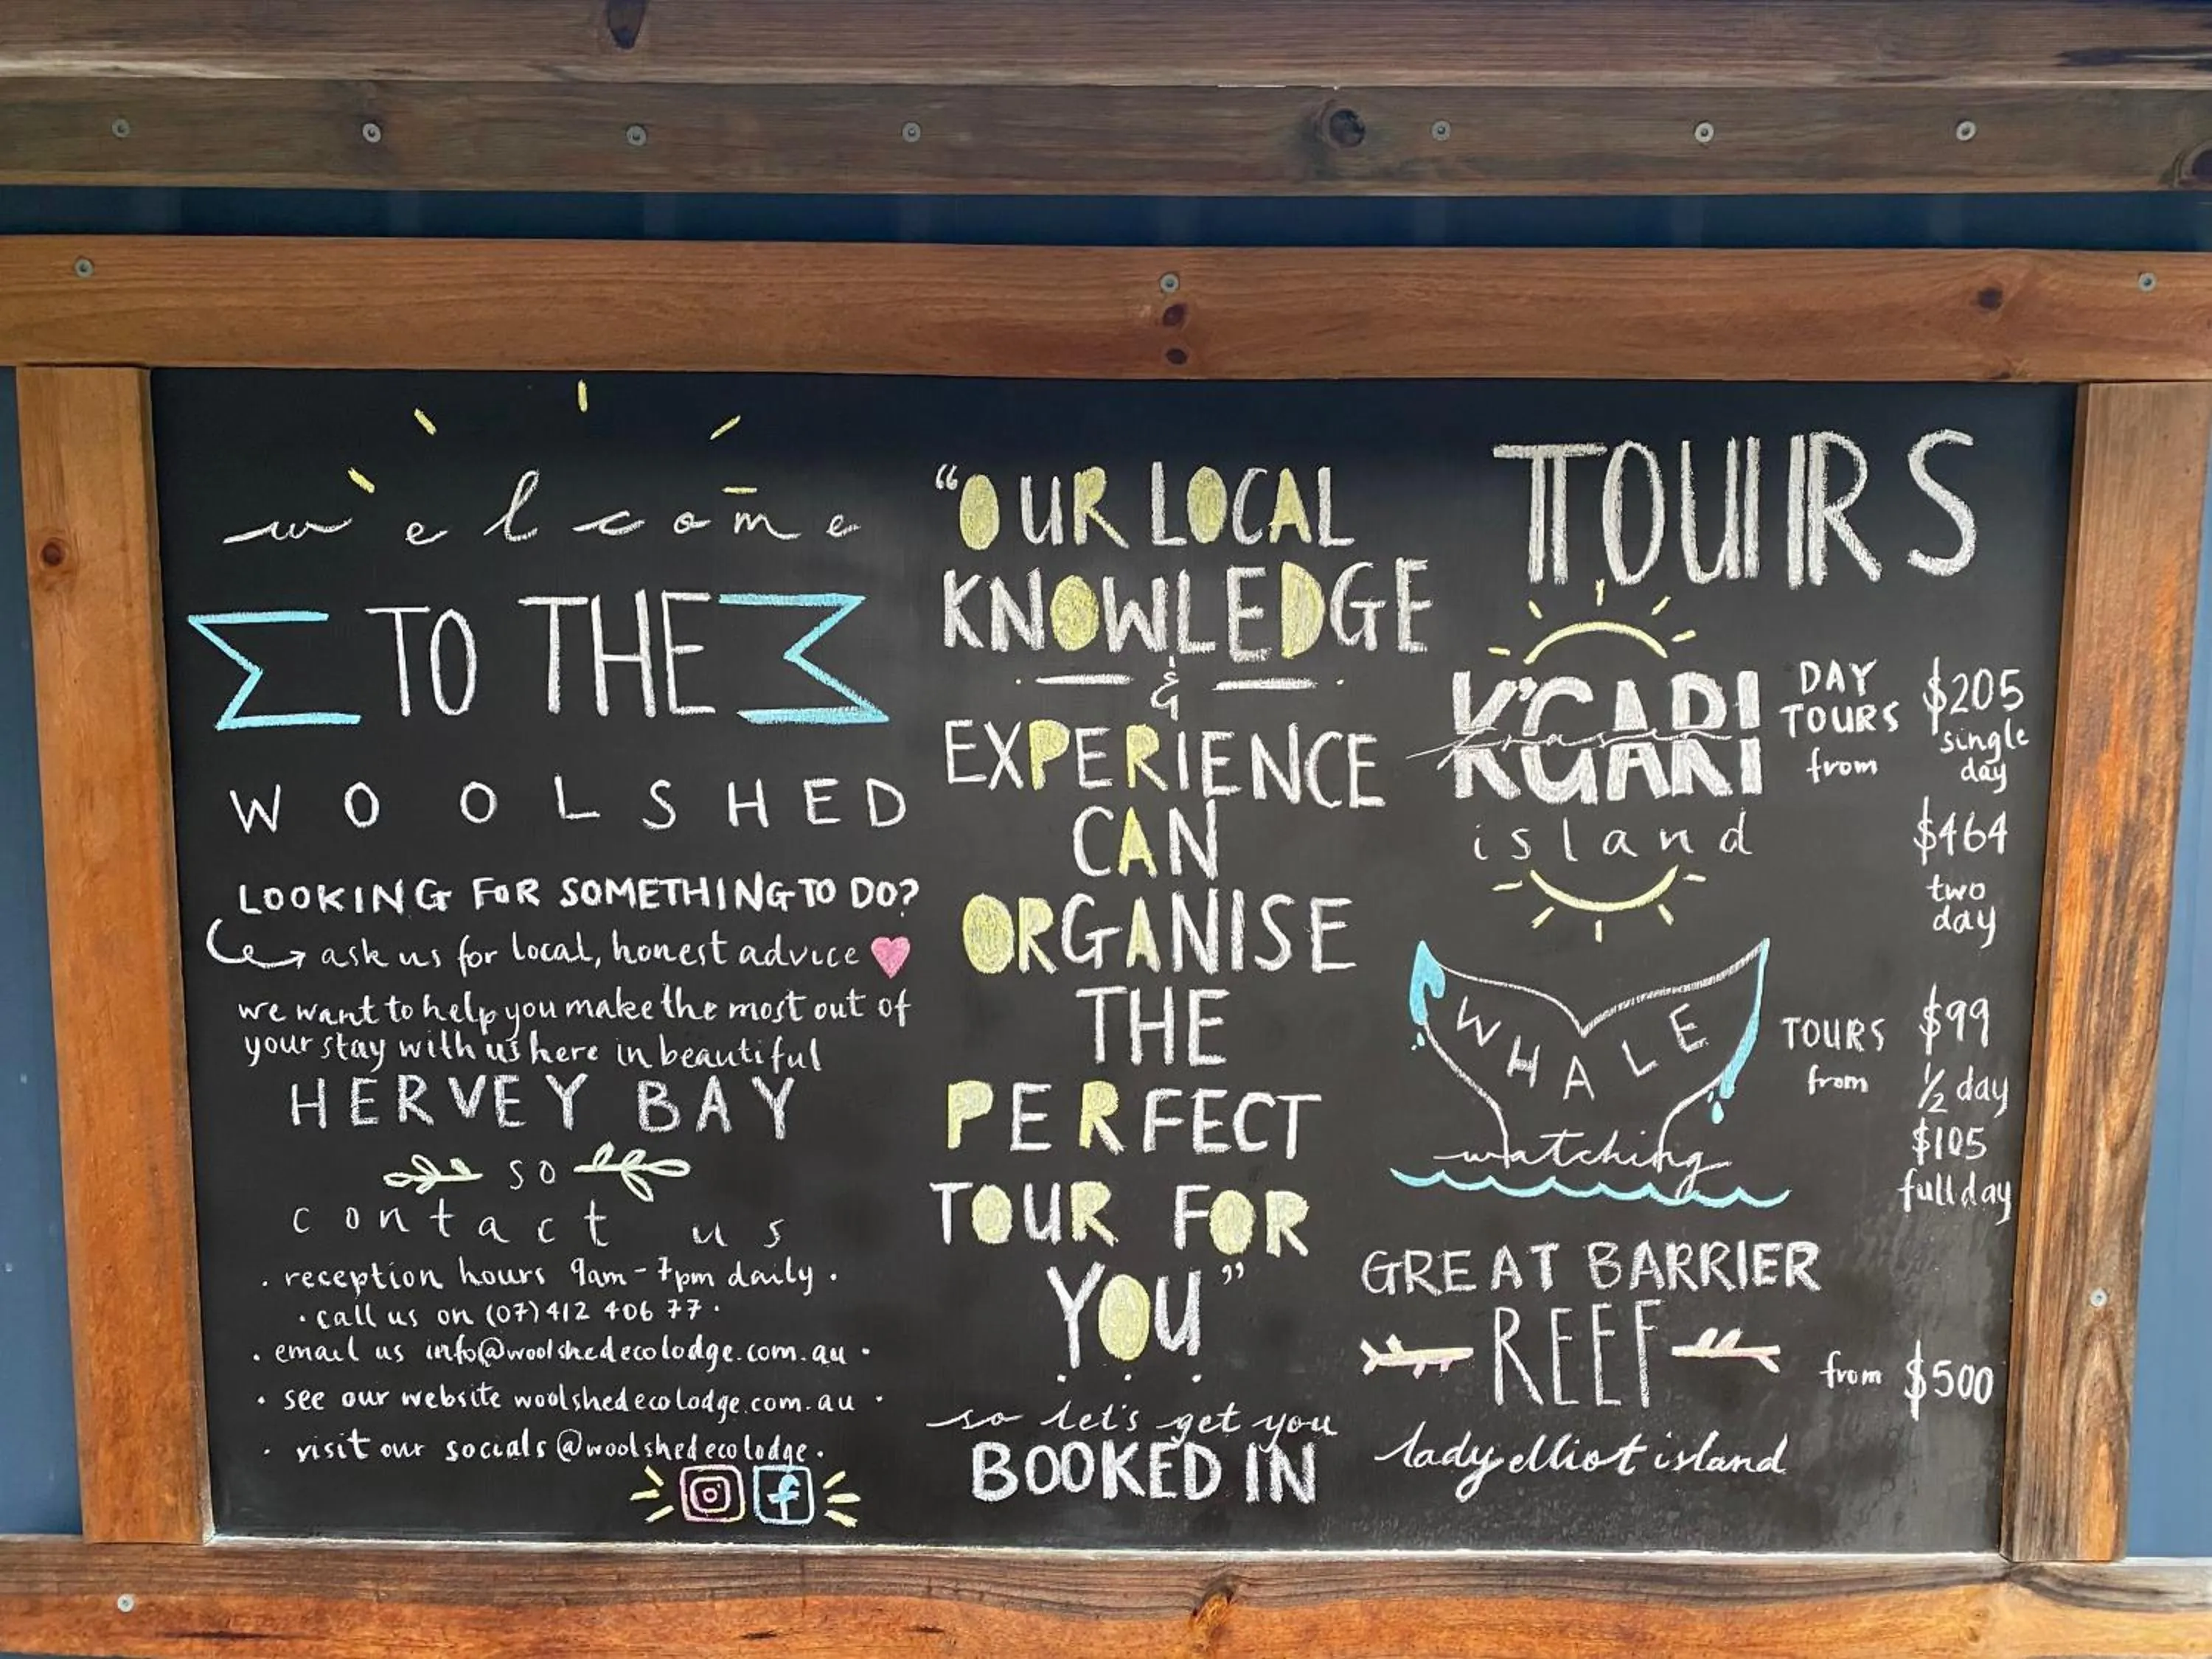 welcome
TO THE
WOOLSHED
LOOKING FOR SOMETHING TO DO?
ask us for local, honest advice
we want to help you make the most out of
your stay with us here in beautiful
HERVEY BAY
so
contact us
. reception hours 9am - 7pm daily .
. call us on (07) 412 406 77 .
. email us info@woolshedecolodge.com.au .
. see our website woolshedecolodge.com.au .
. visit our socials @woolshedecolodge .
"OUR LOCAL
KNOWLEDGE
&
EXPERIENCE
CAN
ORGANISE
THE
PERFECT
TOUR FOR
YOU"
. . .
so let's get you
BOOKED IN
TOURS
K'GARI
fraser
island
DAY
TOURS
from
$205
single
day
$464
two
day
WHALE
watching
TOURS
from
$99
1/2 day
$105
full day
GREAT BARRIER
REEF
from $500
lady elliot island